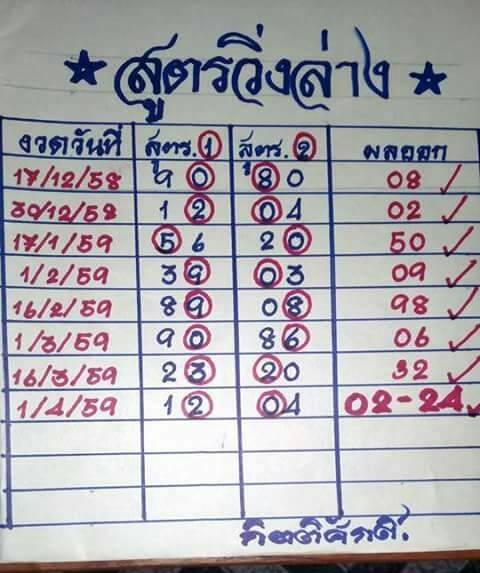 ★ สูตรวิ่งล่าง ★
งวดวันที่ สูตร.1 สูตร.2 ผลออก
17/12/58 90 80 08 ✓
30/12/58 12 04 02 ✓
17/1/59 56 20 50 ✓
1/2/59 39 03 09 ✓
16/2/59 89 08 98 ✓
1/3/59 90 86 06 ✓
16/3/59 23 20 32 ✓
1/4/59 12 04 02-24 ✓
กิตติศักดิ์.